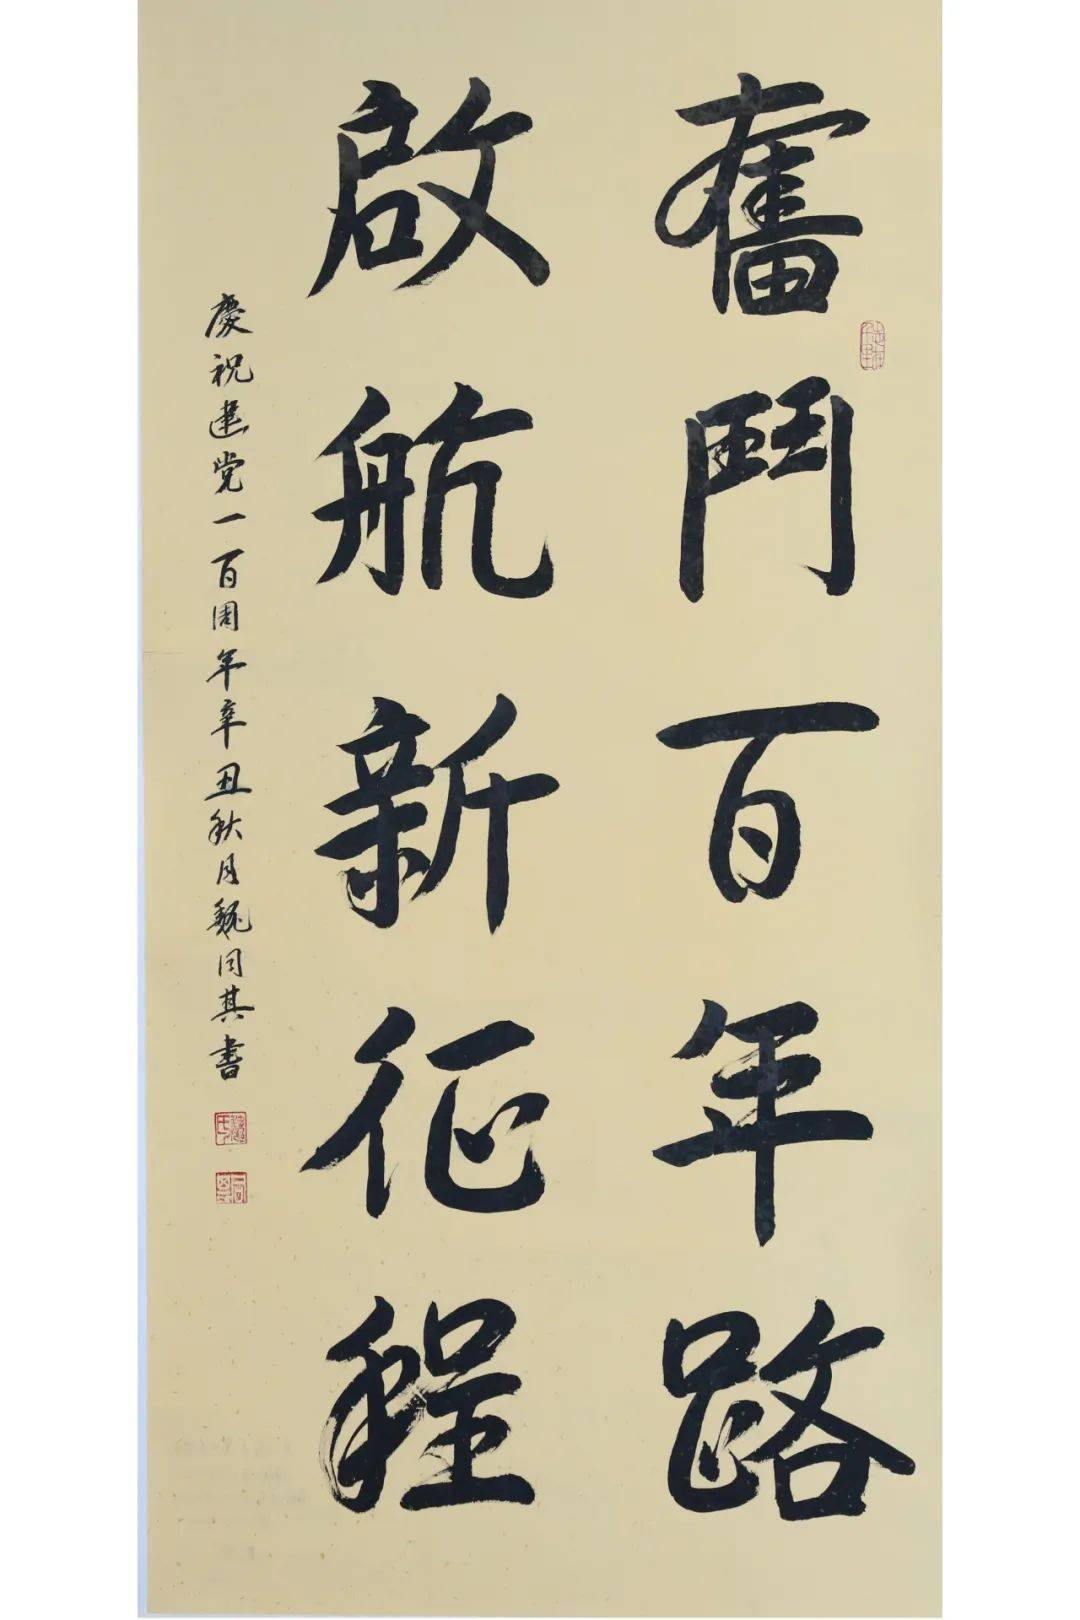 奮鬥百年路
啟航新征程
慶祝建党一百周年辛丑秋月魏同其書